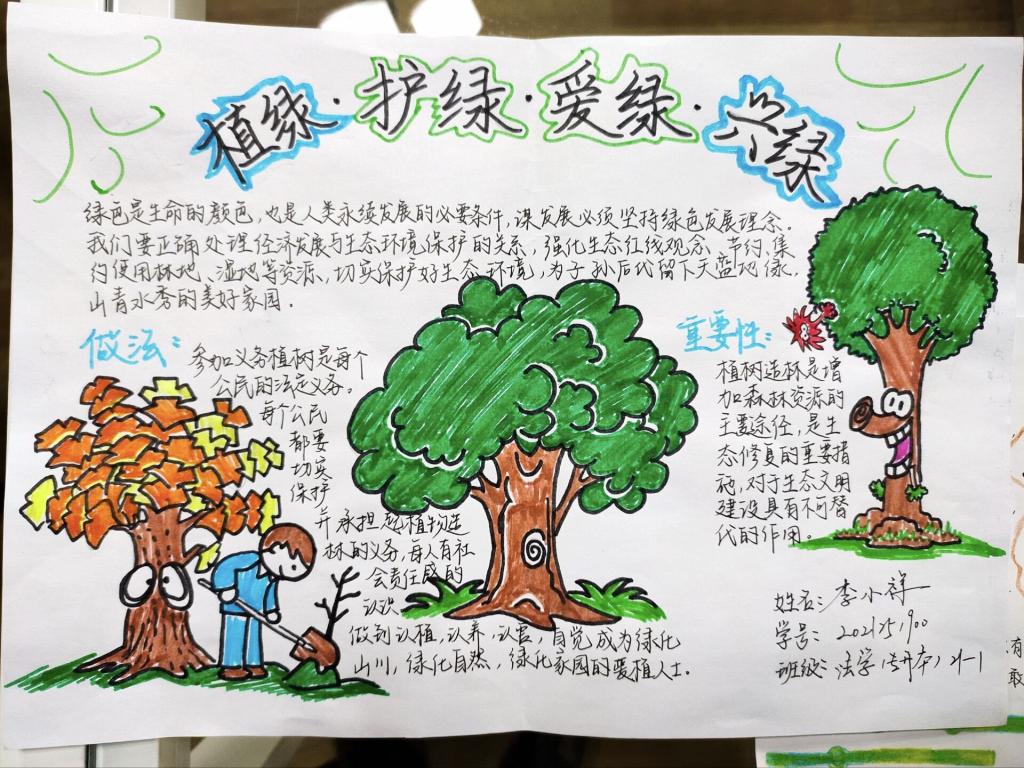 植绿·护绿·爱绿·兴绿
绿色是生命的颜色,也是人类永续发展的必要条件,谋发展必须坚持绿色发展理念。
我们要正确处理经济发展与生态环境保护的关系,强化生态红线观念,节约、集
约使用林地、湿地等资源,切实保护好生态环境,为子孙后代留下天蓝地绿、
山青水秀的美好家园.
做法:
参加义务植树是每个
公民的法定义务。
每个公民
都要
切实
保护
并承担起植物造
林的义务,每人有社
会责任感的
认识
做到认植,认养,认管,自觉成为绿化
山川,绿化自然,绿化家园的爱植人士.
重要性:
植树造林是增
加森林资源的
主要途径,是生
态修复的重要措
施,对于生态文明
建设具有不可替
代的作用。
姓名:李小祥
学号:
班级:法学(专升本)21-1
有
取